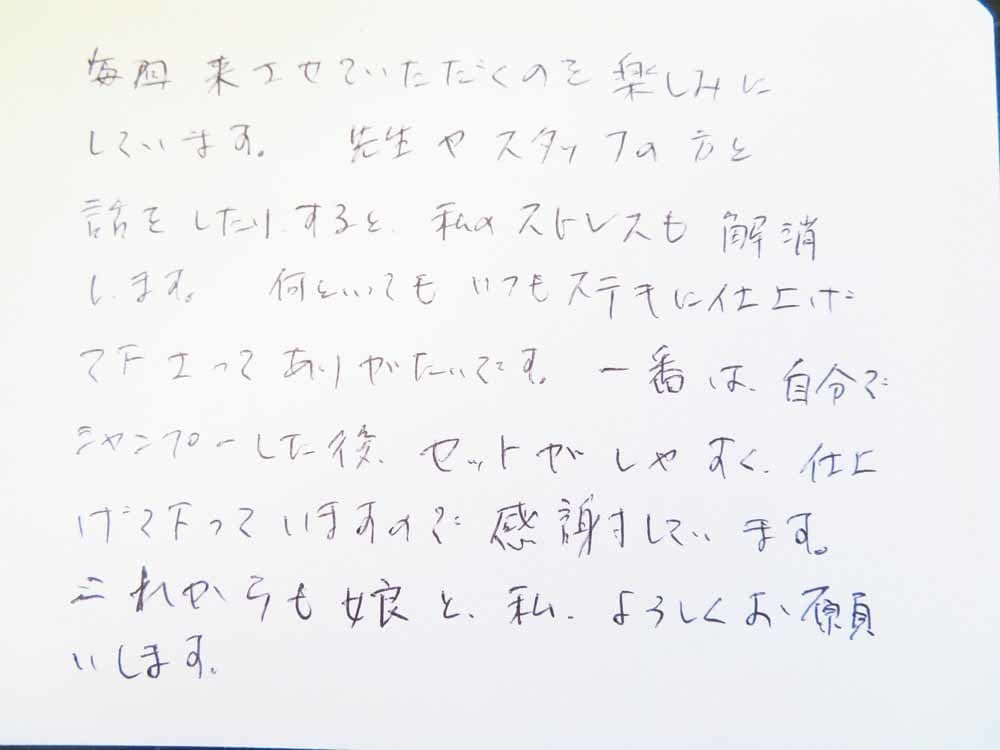 毎回 来させていただくのを楽しみに
しています。 先生やスタッフの方と
話をしたりすると、私のストレスも 解消
します。 何といっても いつもステキに仕上げ
て下さって ありがたいです。一番は、自分で
シャンプーした後、セットがしやすく、仕上
げて下っていますので 感謝しています。
これからも娘と、私、よろしくお願
いします。